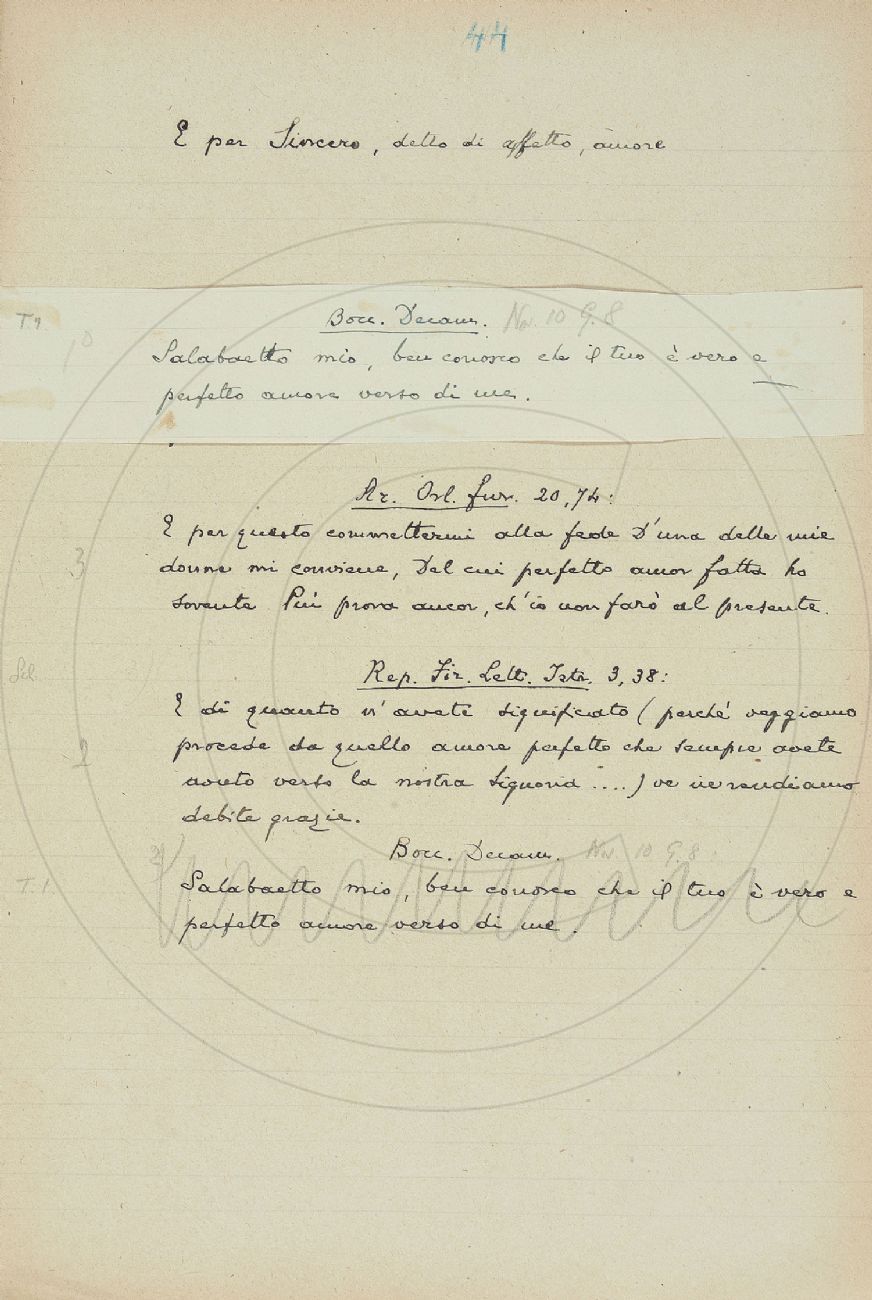 44
E per Sincero, detto di affetto, amore
T. 1
Bocc. Decam. Nov. 10 G. 8
1º
Salabaetto mio, ben conosco che il tuo è vero e
perfetto amore verso di me.
Ar. Orl. fur. 20,74:
E per questo commettermi alla fede D'una delle mie
3
donne mi conviene, Del cui perfetto amor fatta ho
sovente Più prova ancor, ch'io non farò al presente.
Rep. Fir. Lett. Istr. 3, 38:
E di quanto n'avete significato (perché veggiamo
2
procede da quello amore perfetto che sempre avete
avuto verso la nostra Signoria ....) ve ne rendiamo
debite grazie.
Bocc. Decam. Nov. 10 G. 8
T. 1
Salabaetto mio, ben conosco che il tuo è vero e
perfetto amore verso di me.